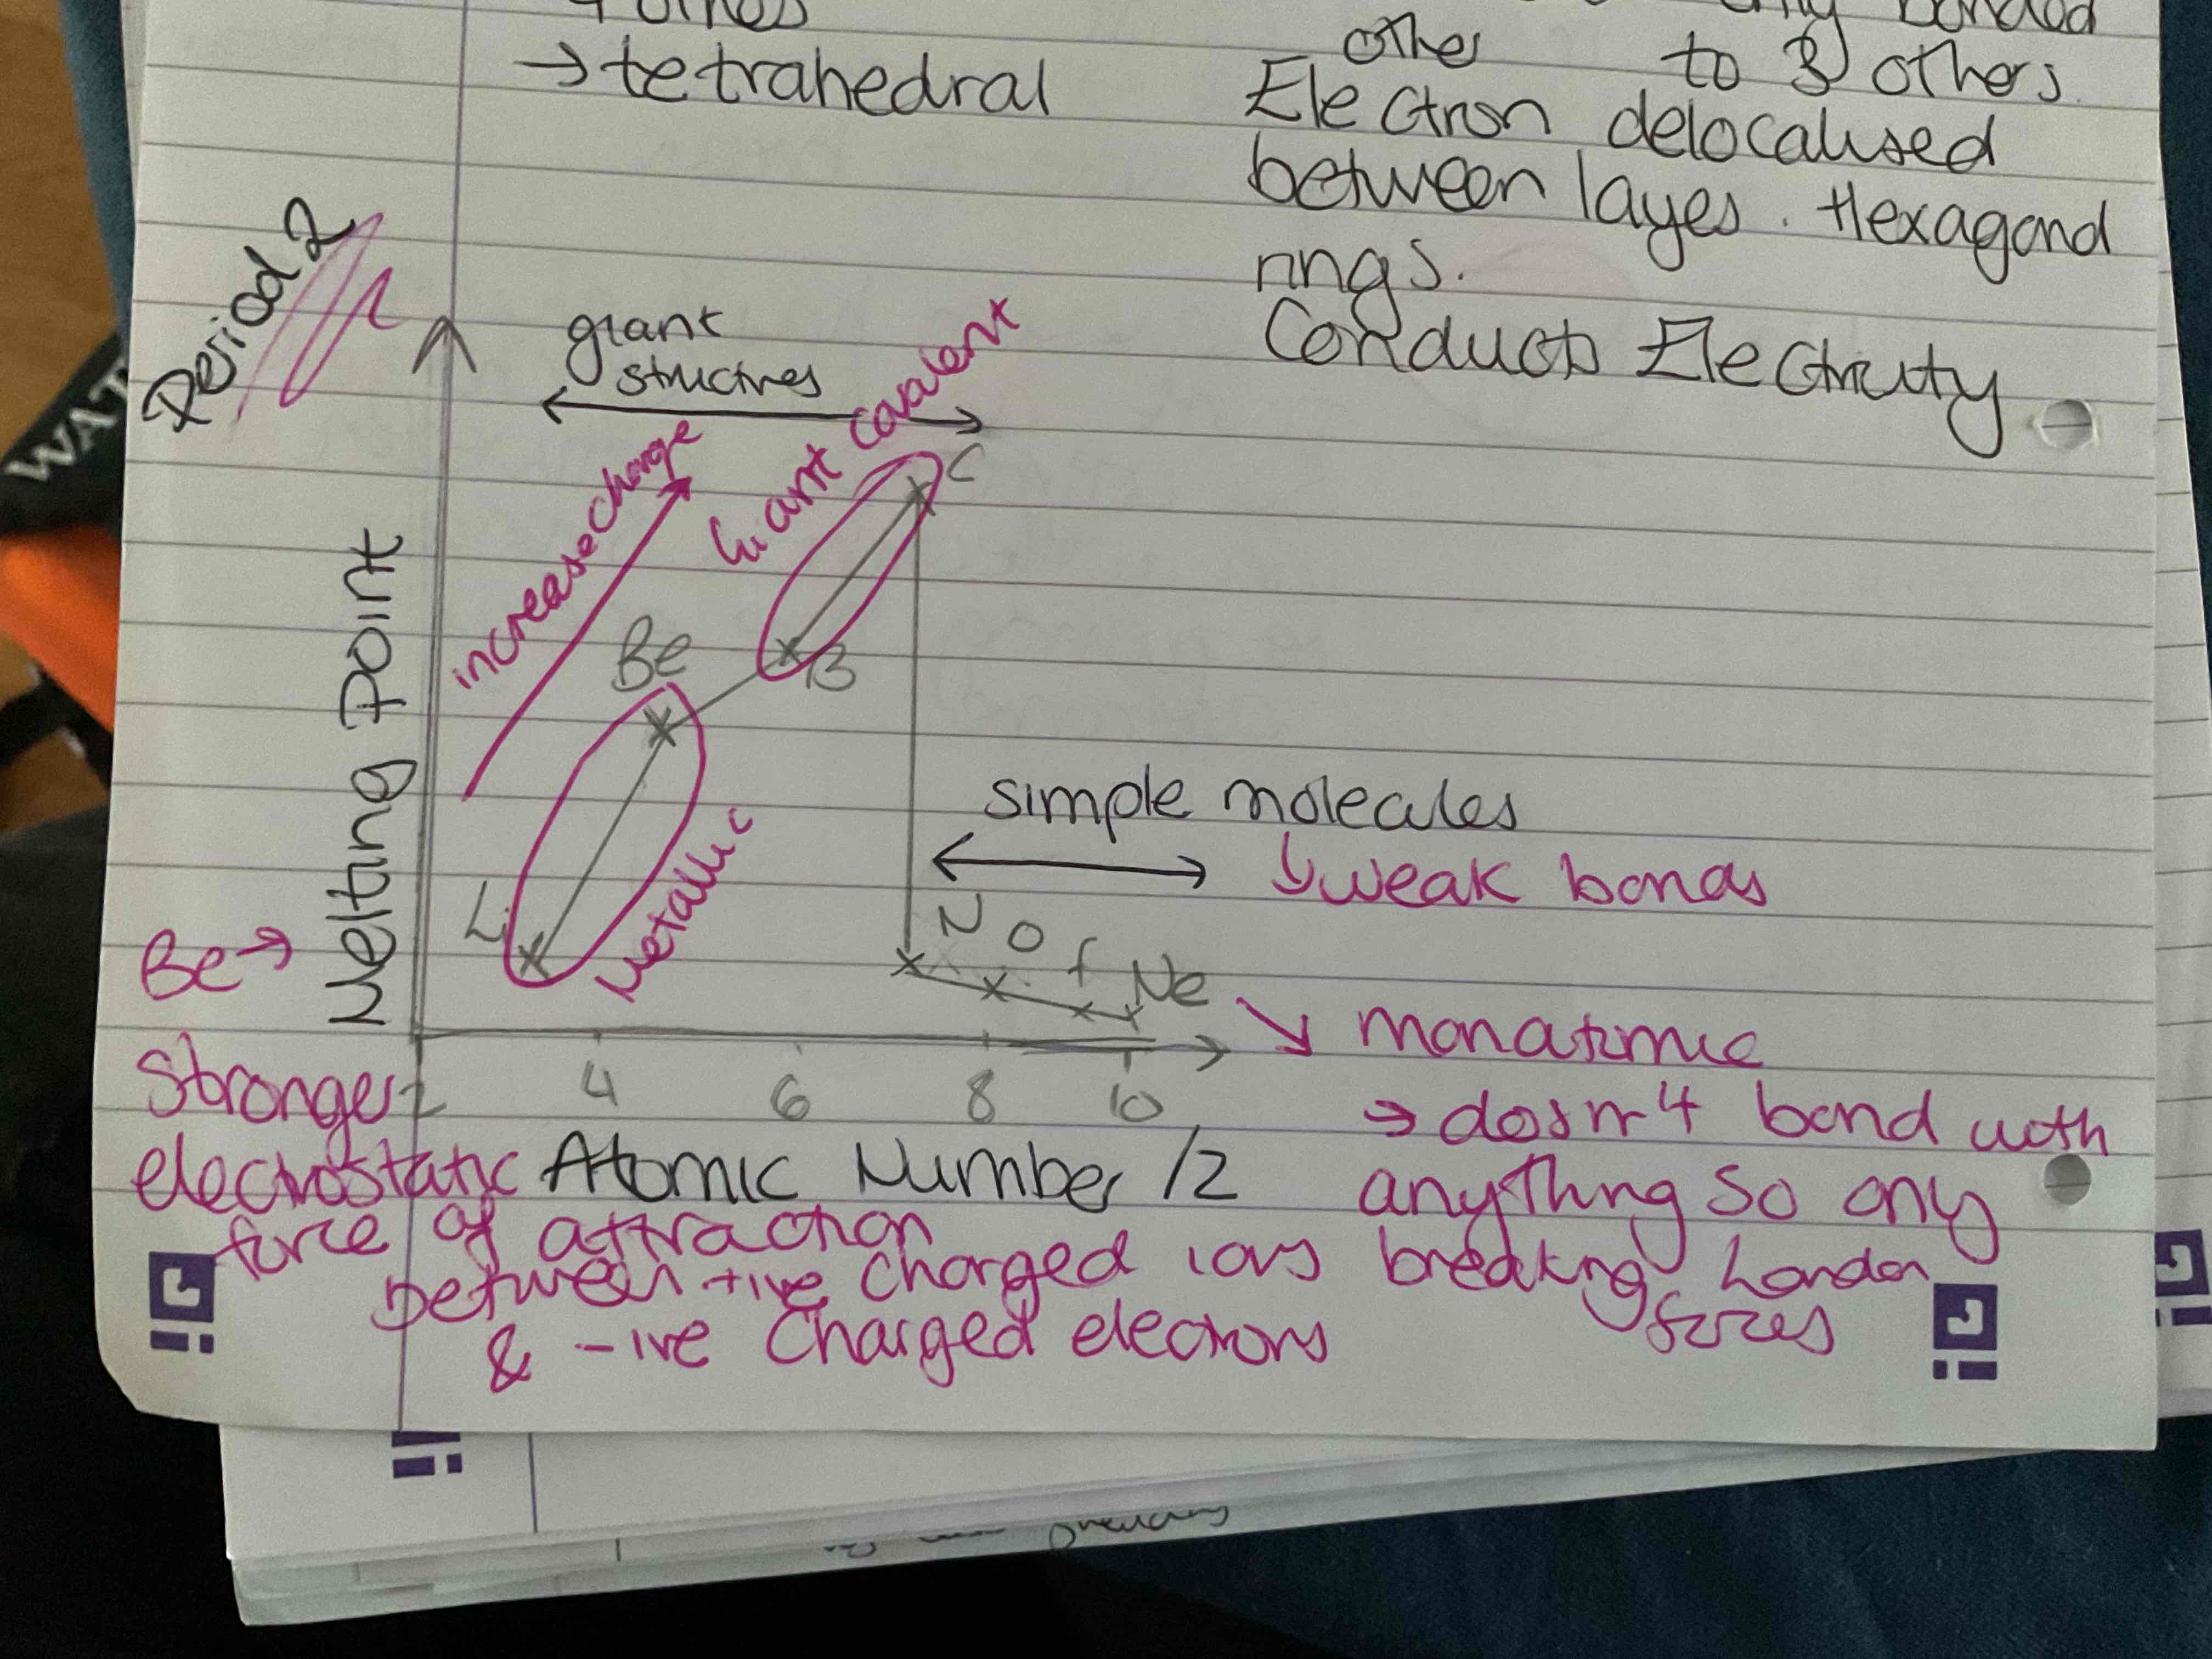 → tetrahedral
bonded
other to 3 others.
Electron delocalised
between layes. Hexagonal
rings.
Conducts Electricity
Period 2
giant
structres
increase charge
Giant Covalent
C
Be
B
Li
Metallic
Melting Point
simple molecules
↳ weak bonds
N O f Ne
↘ monatomic
→ dosn't bond with
anything so only
breaking London
forces
2 4 6 8 10
Atomic Number /Z
Be →
Stronger
electrostatic
force of attraction
between +ive charged ions
& -ive Charged electrons
WAT